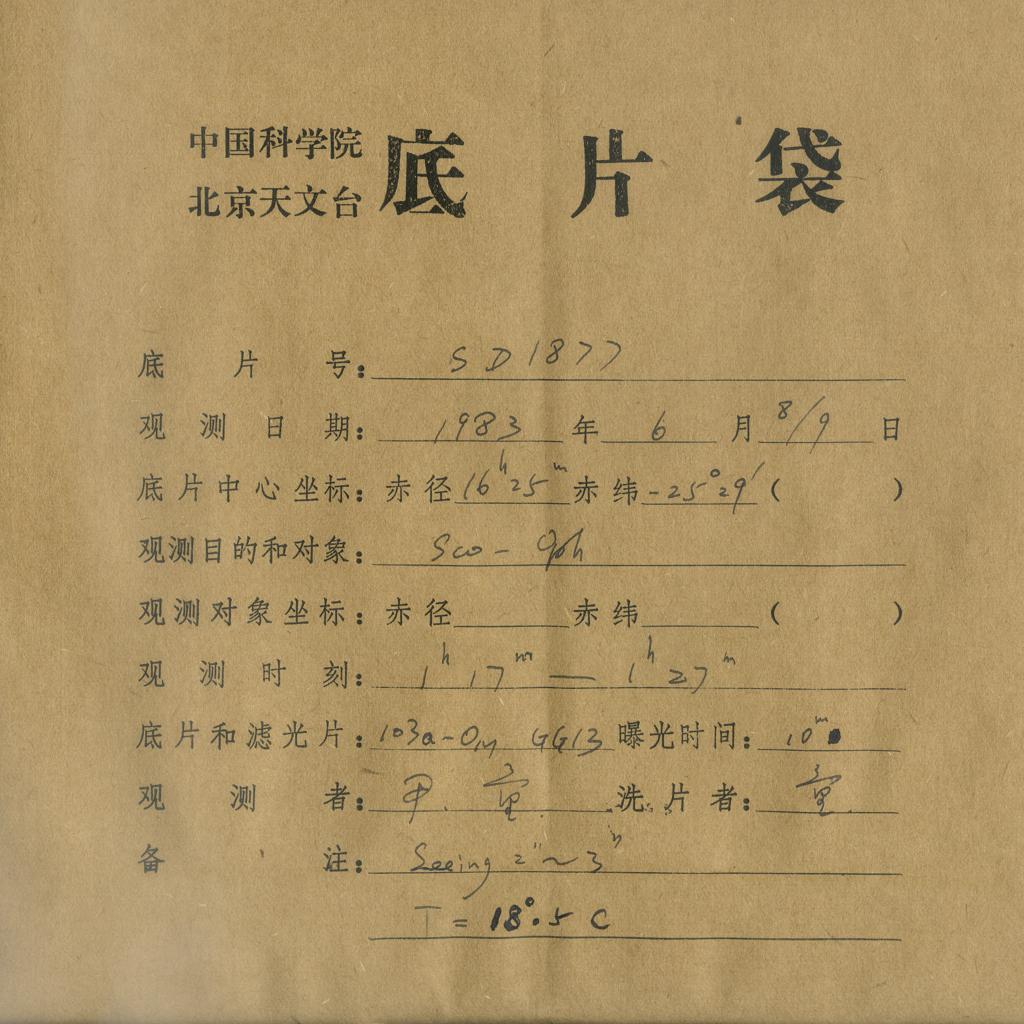 中国科学院
北京天文台
底片袋
底片号：SD1877
观测日期：1983年6月8/9日
底片中心坐标：赤径16h25m赤纬-25°29′（ ）
观测目的和对象：Sco - Oph
观测对象坐标：赤径 赤纬 （ ）
观测时刻：1h 17m — 1h 27m
底片和滤光片：103a-O GG13 曝光时间：10m
观测者： 洗片者：
备注：Seeing 2″~3″
T = 18°.5 C